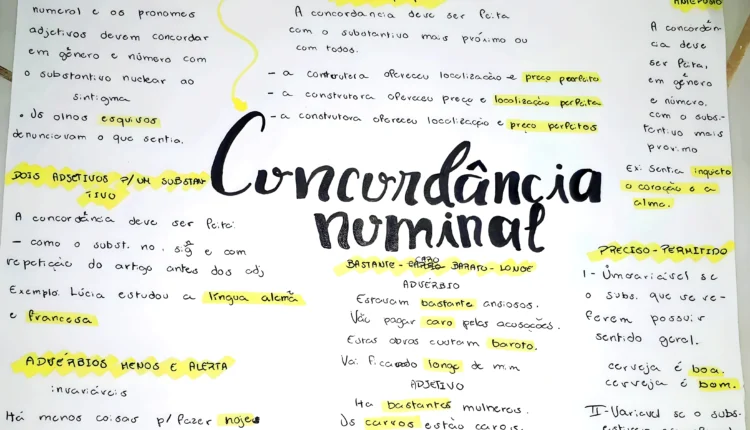 numeral e os pronomes
adjetivos devem concordar
em gênero e número com
o substantivo nuclear ao
sintigma
• Os olhos esquivos
denunciavam o que sentia.
A concordancia deve ser feita
com o substantivo mais próximo ou
com todos.
- a construtora ofereceu localização e preço perfeito
- a construtora ofereceu preço e localização perfeita
- a construtora ofereceu localização e preço perfeitos
ANTEPOSTO
A concordân-
cia deve
ser feita,
em gênero
e número,
com o subs-
tantivo mais
proximo
Ex: Sentia inquieto
o coração e a
alma.
Concordância
nominal
DOIS ADJETIVOS P/ UM SUBSTAN-
TIVO
A concordância deve ser feita:
- como o subst. no . sig e com
repetição do artigo antes dos adj
Exemplo: Lúcia estudou a língua alemã
e francesa
ADVÉRBIOS MENOS E ALERTA
invariáveis
Há menos coisas p/ fazer hoje
BASTANTE - CARO BARATO - LONGE
ADVÉRBIO
Estavam bastante ansiosos.
Vão pagar caro pelas acusações.
Essas obras custam barato.
Vai ficando longe de mim
ADJETIVO
Ha bastantes mulheres.
Os carros estão caros.
PRECISO - PERMITIDO
I - Invariável se
o subs. que se re-
ferem possuir
sentido geral.
cerveja é boa.
cerveja é bom.
II - Variavel se o subs.